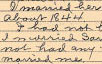 I married her
About 1844
I had not b
I married Sa
not had any
married me.